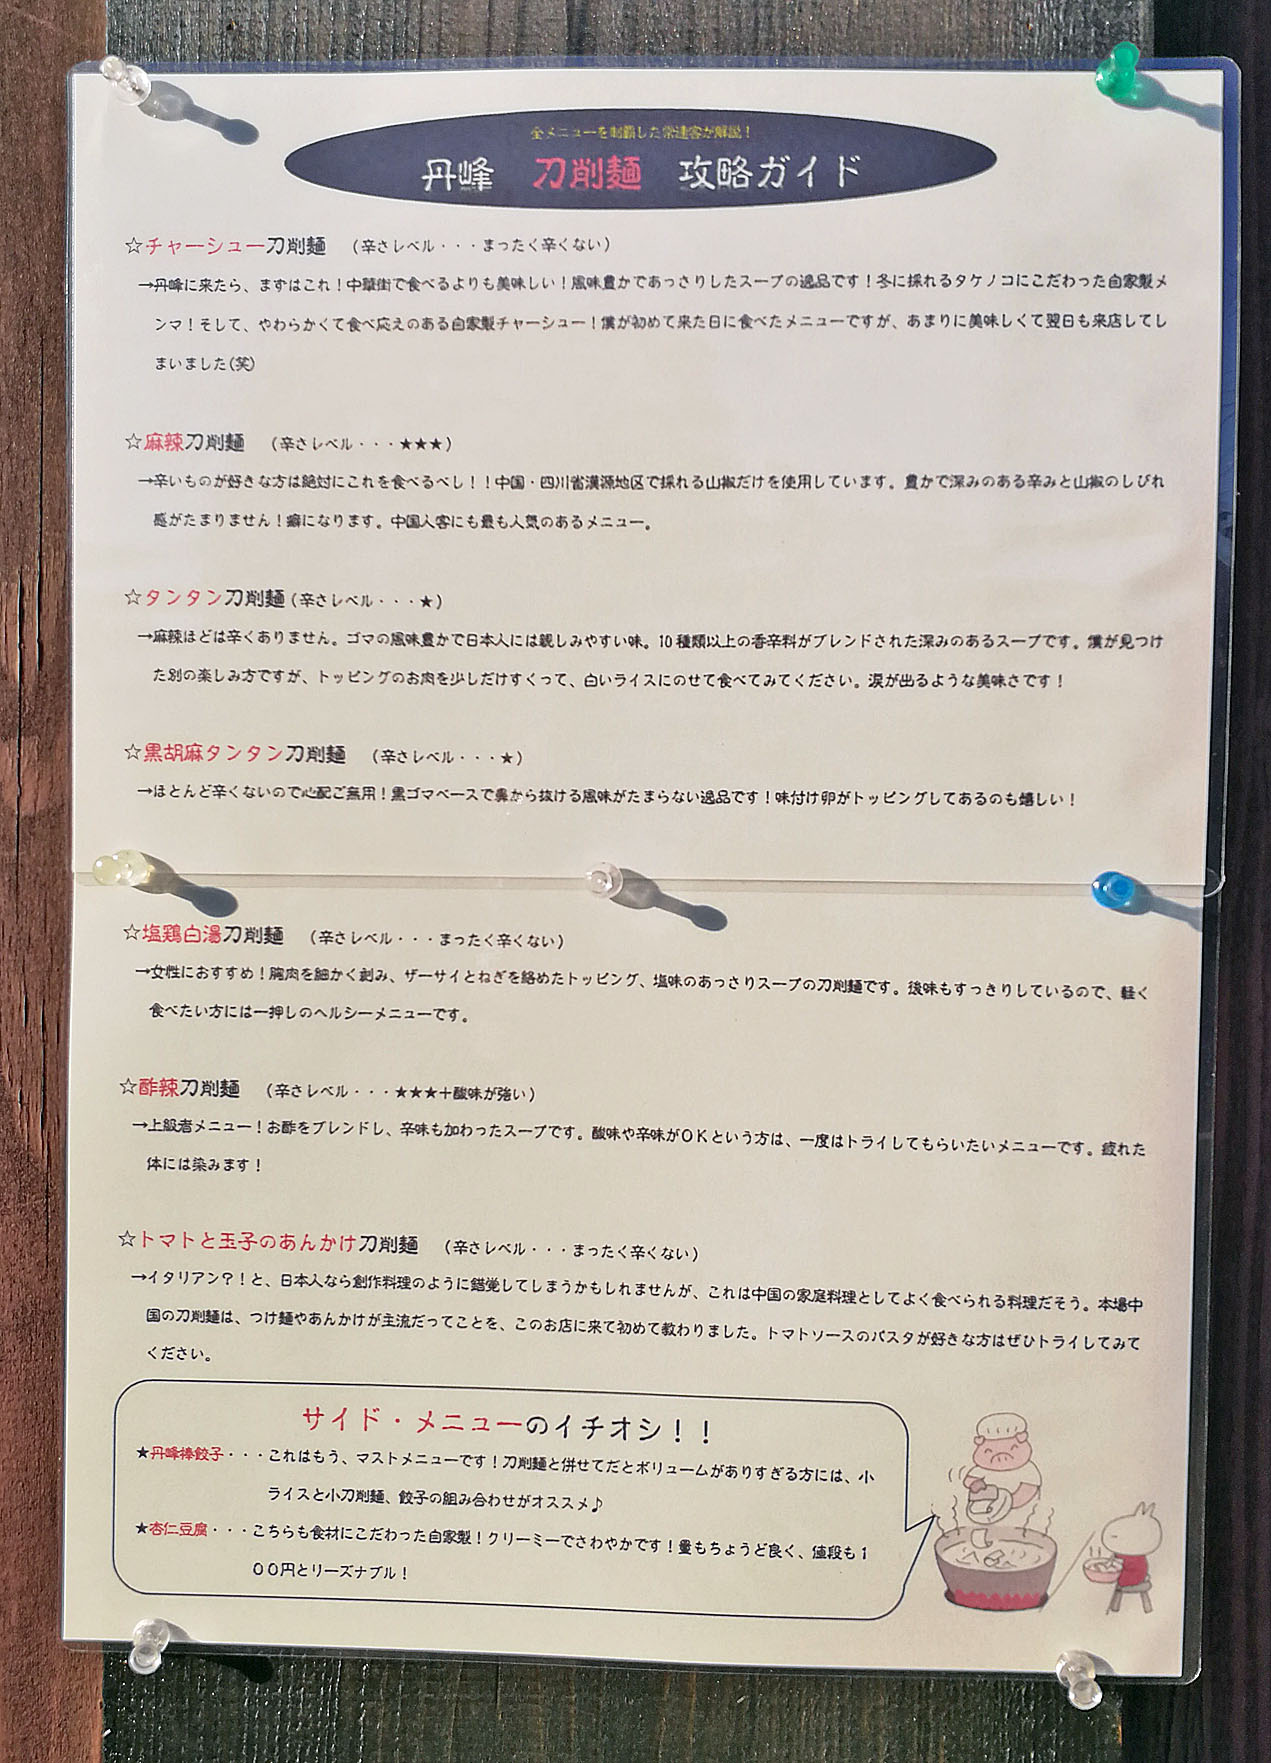 全メニューを制覇した常連客が解説！
丹峰　刀削麺　攻略ガイド
☆チャーシュー刀削麺　（辛さレベル・・・まったく辛くない）
→丹峰に来たら、まずはこれ！中華街で食べるよりも美味しい！風味豊かであっさりしたスープの逸品です！冬に採れるタケノコにこだわった自家製メ
ンマ！そして、やわらかくて食べ応えのある自家製チャーシュー！僕が初めて来た日に食べたメニューですが、あまりに美味しくて翌日も来店してし
まいました(笑)
☆麻辣刀削麺　（辛さレベル・・・★★★）
→辛いものが好きな方は絶対にこれを食べるべし！！中国・四川省漢源地区で採れる山椒だけを使用しています。豊かで深みのある辛みと山椒のしびれ
感がたまりません！癖になります。中国人客にも最も人気のあるメニュー。
☆タンタン刀削麺（辛さレベル・・・★）
→麻辣ほどは辛くありません。ゴマの風味豊かで日本人には親しみやすい味。10種類以上の香辛料がブレンドされた深みのあるスープです。僕が見つけ
た別の楽しみ方ですが、トッピングのお肉を少しだけすくって、白いライスにのせて食べてみてください。涙が出るような美味さです！
☆黒胡麻タンタン刀削麺　（辛さレベル・・・★）
→ほとんど辛くないので心配ご無用！黒ゴマベースで鼻から抜ける風味がたまらない逸品です！味付け卵がトッピングしてあるのも嬉しい！
☆塩鶏白湯刀削麺　（辛さレベル・・・まったく辛くない）
→女性におすすめ！胸肉を細かく刻み、ザーサイとねぎを絡めたトッピング、塩味のあっさりスープの刀削麺です。後味もすっきりしているので、軽く
食べたい方には一押しのヘルシーメニューです。
☆酢辣刀削麺　（辛さレベル・・・★★★＋酸味が強い）
→上級者メニュー！お酢をブレンドし、辛味も加わったスープです。酸味や辛味がＯＫという方は、一度はトライしてもらいたいメニューです。疲れた
体には染みます！
☆トマトと玉子のあんかけ刀削麺　（辛さレベル・・・まったく辛くない）
→イタリアン？！と、日本人なら創作料理のように錯覚してしまうかもしれませんが、これは中国の家庭料理としてよく食べられる料理だそう。本場中
国の刀削麺は、つけ麺やあんかけが主流だってことを、このお店に来て初めて教わりました。トマトソースのパスタが好きな方はぜひトライしてみて
ください。
サイド・メニューのイチオシ！！
★丹峰棒餃子・・・これはもう、マストメニューです！刀削麺と併せてだとボリュームがありすぎる方には、小
ライスと小刀削麺、餃子の組み合わせがオススメ♪
★杏仁豆腐・・・こちらも食材にこだわった自家製！クリーミーでさわやかです！量もちょうど良く、値段も１
００円とリーズナブル！